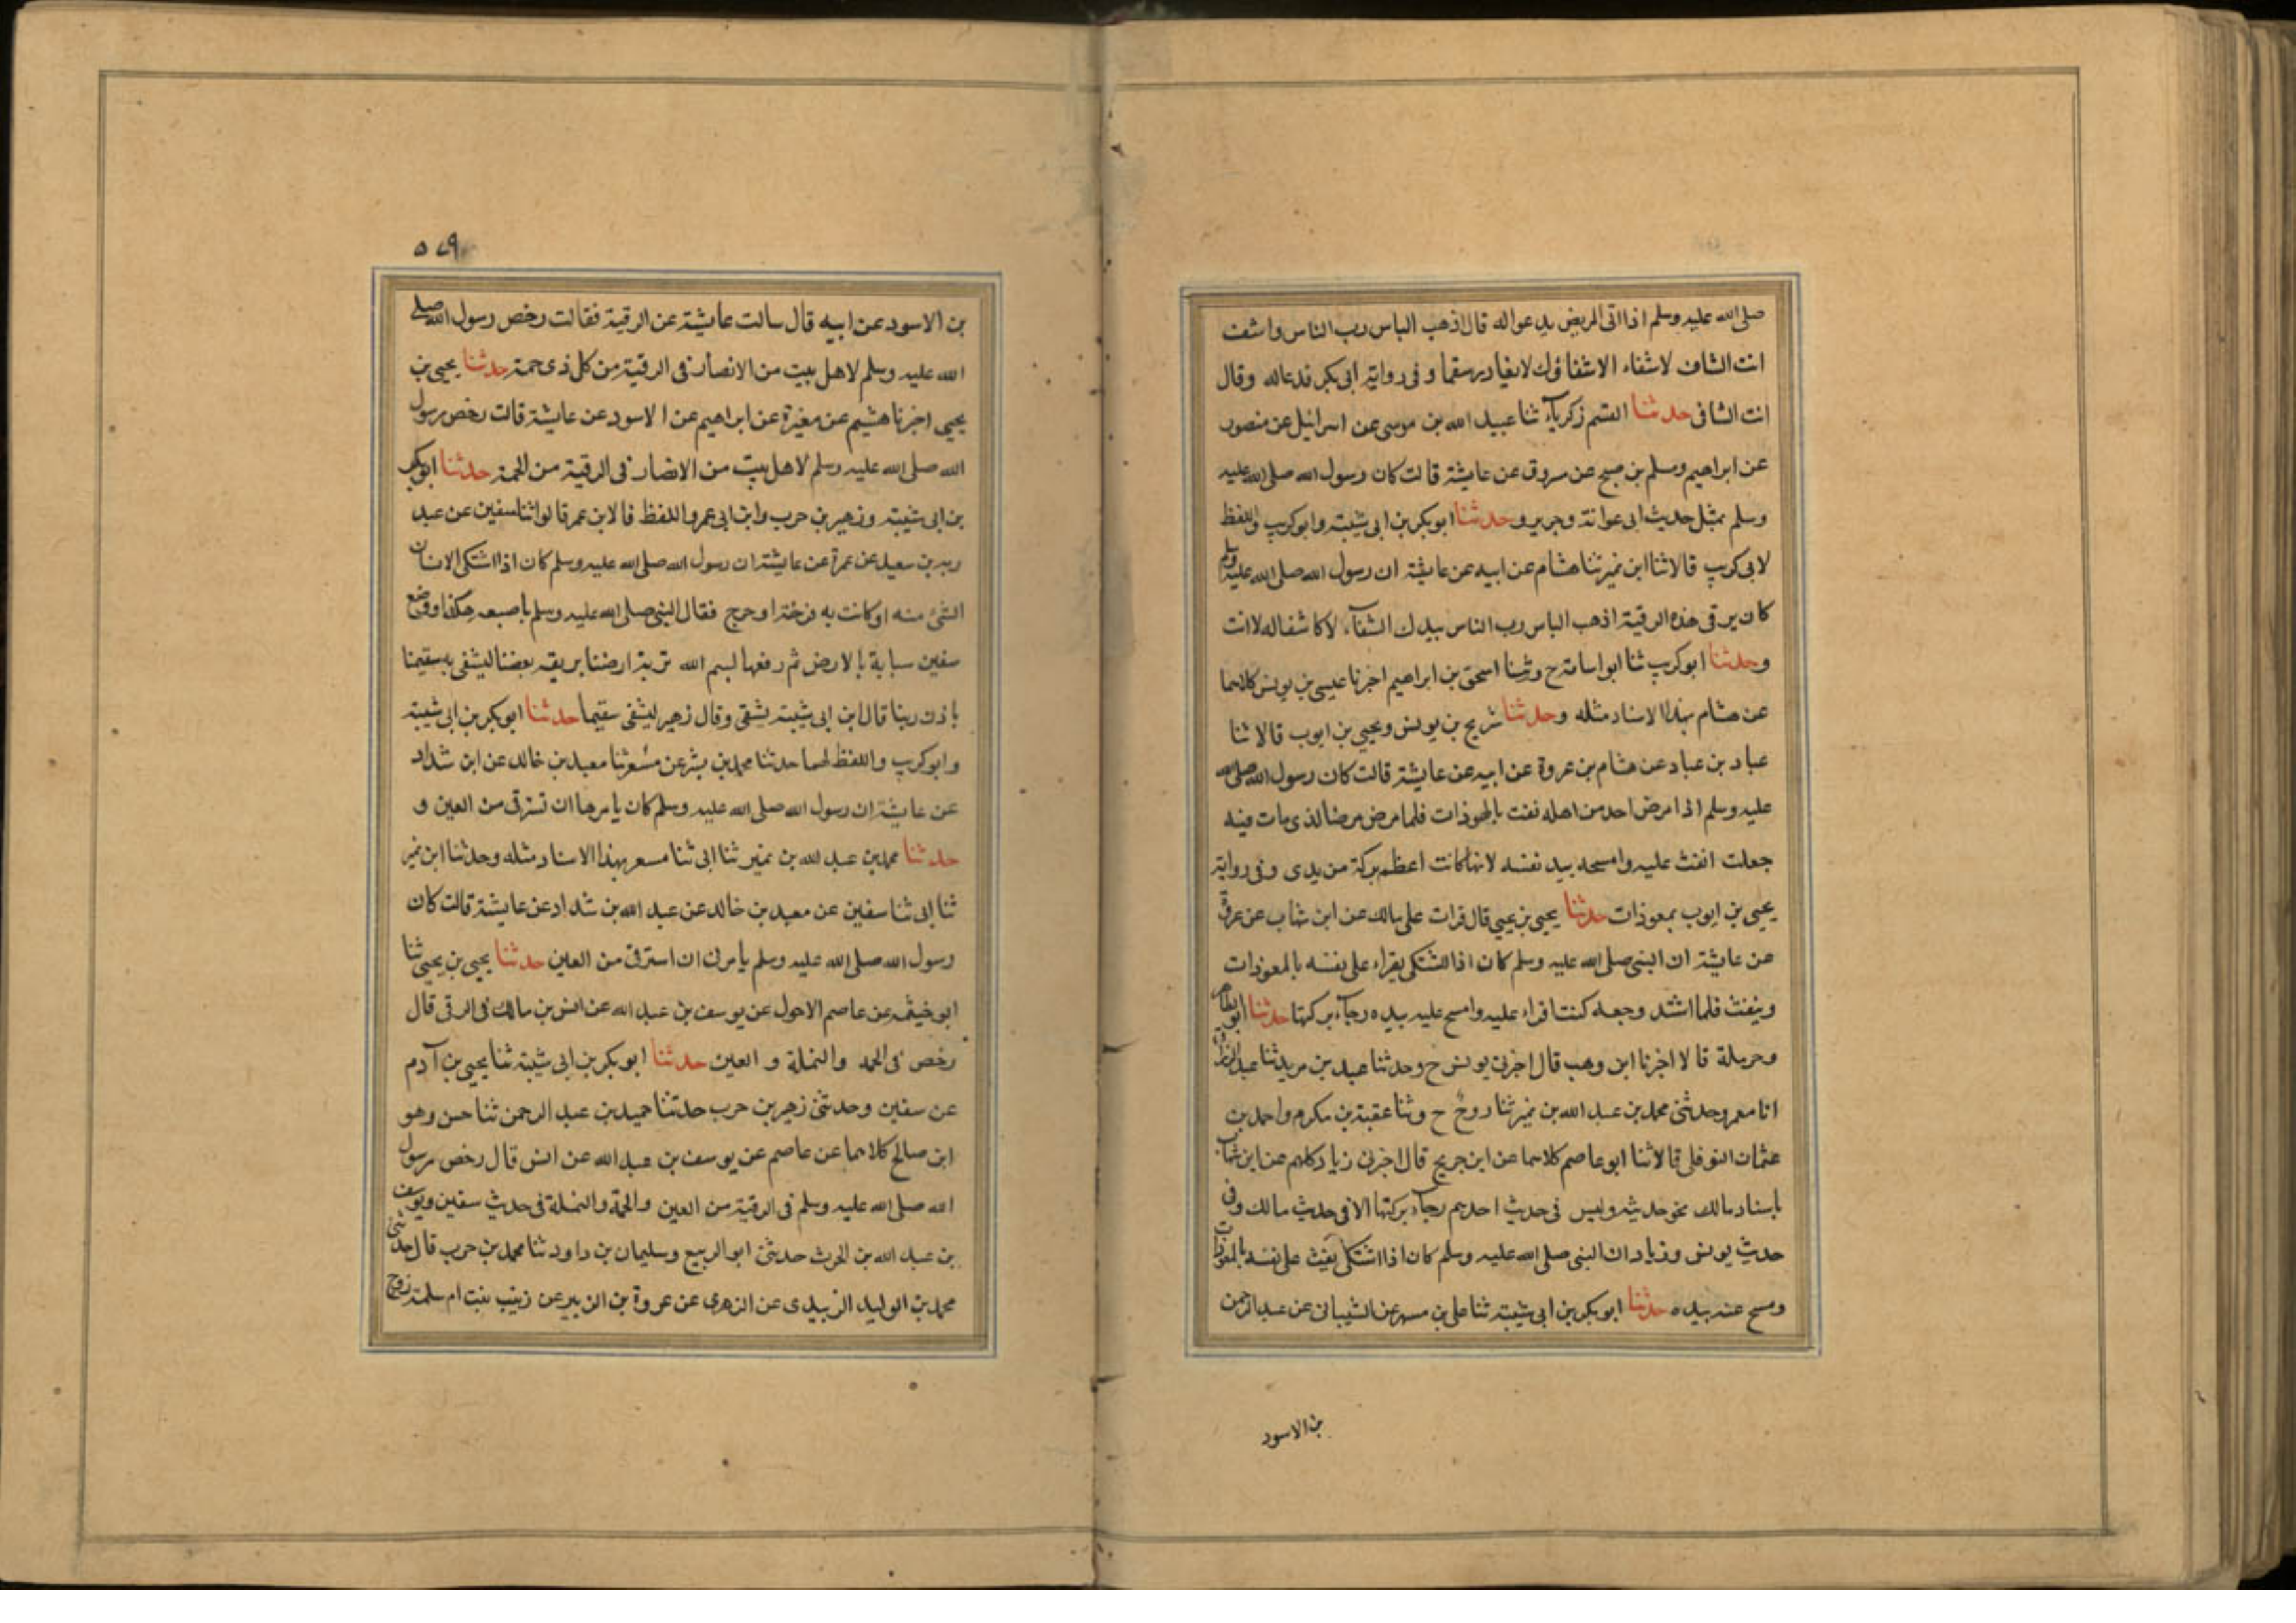 صلى الله عليه وسلم اذا اتى المريض يدعواله قال اذهب الباس رب الناس واشف
انت الشاف لاشفاء الاشفاؤك لايغادر سقما وفى رواية ابى بكر فدعاله وقال
انت الشافى حدثنا القسم زكرياء ثنا عبيد الله بن موسى عن اسرائيل عن منصور
عن ابراهيم ومسلم بن صبيح عن مسروق عن عايشة قالت كان رسول الله صلى الله عليه
وسلم بمثل حديث ابى عوانة وجرير وحدثنا ابو بكر بن ابى شيبة وابو كريب واللفظ
لابى كريب قالا ثنا ابن نمير ثنا هشام عن ابيه عن عايشة ان رسول الله صلى الله عليه وسلم
كان يرقى هذه الرقية اذهب الباس رب الناس بيدك الشفاء لاكاشفاله لا انت
وحدثنا ابو كريب ثنا ابو اسامة ح وثنا اسحق بن ابراهيم اخبرنا عيسى بن يونس كلاهما
عن هشام بهذا الاسناد مثله وحدثنا شريح بن يونس ويحيى بن ايوب قالا ثنا
عباد بن عباد عن هشام بن عروة عن ابيه عن عايشة قالت كان رسول الله صلى الله
عليه وسلم اذا مرض احد من اهله نفث بالمعوذات فلما مرض مرضا لذى مات فيه
جعلت انفث عليه وامسحه بيد نفسه لانها كانت اعظم بركة من يدى وفى رواية
يحيى بن ايوب بمعوذات حدثنا يحيى بن يحيى قال قرات على مالك عن ابن شهاب عن عروة
عن عايشة ان النبى صلى الله عليه وسلم كان اذا اشتكى يقراء على نفسه بالمعوذات
وينفث فلما اشتد وجعه كنت اقراء عليه وامسح عليه بيده رجاء بركتها حدثنا ابو الطاهر
وحرملة قالا اخبرنا ابن وهب قال اخبرنى يونس ح وحدثنا عبد بن مريد ثنا عبد الرزاق
انا معمر وحدثنى محمد بن عبد الله بن نمير ثنا روح ح وثنا عقبة بن مكرم واحمد بن
عثمان النوفلى قالا ثنا ابو عاصم كلاهما عن ابن جريج قال اخبرنى زياد كلهم عن ابن شهاب
باسناد مالك نحو حديثه وليس فى حديث احدهم رجاء بركتها الا فى حديث مالك وفى
حديث يونس وزياد ان النبى صلى الله عليه وسلم كان اذا اشتكى نفث على نفسه بالمعوذات
ومسح عنه بيده حدثنا ابو بكر بن ابى شيبة ثنا على بن مسهر عن الشيبانى عن عبد الرحمن
بن الاسود
٥٧٩
بن الاسود عن ابيه قال سالت عايشة عن الرقية فقالت رخص رسول الله صلى
الله عليه وسلم لاهل بيت من الانصار فى الرقية من كل ذى حمة حدثنا يحيى بن
يحيى اخبرنا هشيم عن مغيرة عن ابراهيم عن الاسود عن عايشة قالت رخص رسول
الله صلى الله عليه وسلم لاهل بيت من الانصار فى الرقية من الحمة حدثنا ابو بكر
بن ابى شيبة وزهير بن حرب وابن ابى عمر واللفظ فالابن عمر قالوا ثنا سفين عن عبد
ربه بن سعيد عن عمرة عن عايشة ان رسول الله صلى الله عليه وسلم كان اذا اشتكى الانسان
الشئ منه اوكانت به قرحة اوجرح فقال النبى صلى الله عليه وسلم باصبعه هكذا ووضع
سفين سبابة بالارض ثم رفعها لبسم الله تربة ارضنا بريقة بعضنا ليشفى به سقيمنا
باذن ربنا قال ابن ابى شيبة يشفى وقال زهير ليشفى سقيما حدثنا ابو بكر بن ابى شيبة
وابو كريب واللفظ لهما حدثنا محمد بن بشر عن مسعر ثنا معبد بن خالد عن ابن شداد
عن عايشة ان رسول الله صلى الله عليه وسلم كان يامرها ان تسترقى من العين و
حدثنا محمد بن عبد الله بن نمير ثنا ابى ثنا مسعر بهذا الاسناد مثله وحدثنا ابن نمير
ثنا ابى ثنا سفين عن معبد بن خالد عن عبد الله بن شداد عن عايشة قالت كان
رسول الله صلى الله عليه وسلم يامرنى ان استرقى من العين حدثنا يحيى بن يحيى ثنا
ابو خيثمة عن عاصم الاحول عن يوسف بن عبد الله عن انس بن مالك فى الرقى قال
رخص فى الحمة والنملة و العين حدثنا ابو بكر بن ابى شيبة ثنا يحيى بن آدم
عن سفين وحدثنى زهير بن حرب حدثنا حميد بن عبد الرحمن ثنا حسن وهو
ابن صالح كلاهما عن عاصم عن يوسف بن عبد الله عن انس قال رخص رسول
الله صلى الله عليه وسلم فى الرقية من العين والحمة والنملة فى حديث سفين ويوسف
بن عبد الله بن الحرث حدثنى ابو الربيع وسليمان بن داود ثنا محمد بن حرب قال حدثنى
محمد بن الوليد الزبيدى عن الزهرى عن عروة بن الزبير عن زينب بنت ام سلمة زوج